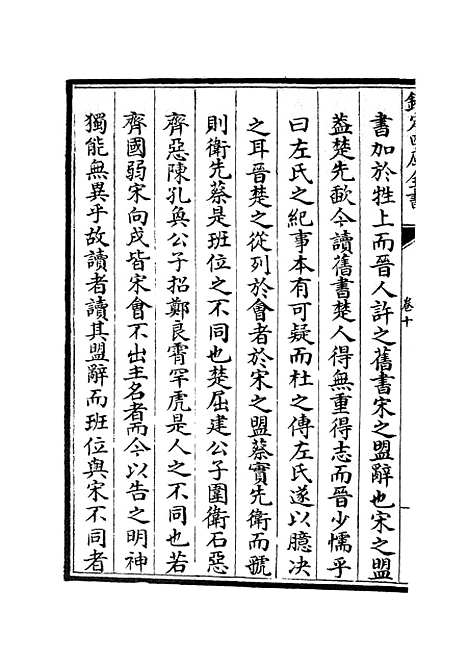 欽定四庫全書
卷十
書加於牲上而晉人許之舊書宋之盟辭也宋之盟
葢楚先歃今讀舊書楚人得無重得志而晉少懦乎
曰左氏之紀事本有可疑而杜之傳左氏遂以臆决
之耳晉楚之從列於會者於宋之盟蔡實先衛而虢
則衛先蔡是班位之不同也楚屈建公子圍衛石惡
齊惡陳孔奐公子招鄭良霄罕虎是人之不同也若
齊國弱宋向戌皆宋會不出主名者而今以告之明神
獨能無異乎故讀者讀其盟辭而班位與宋不同者